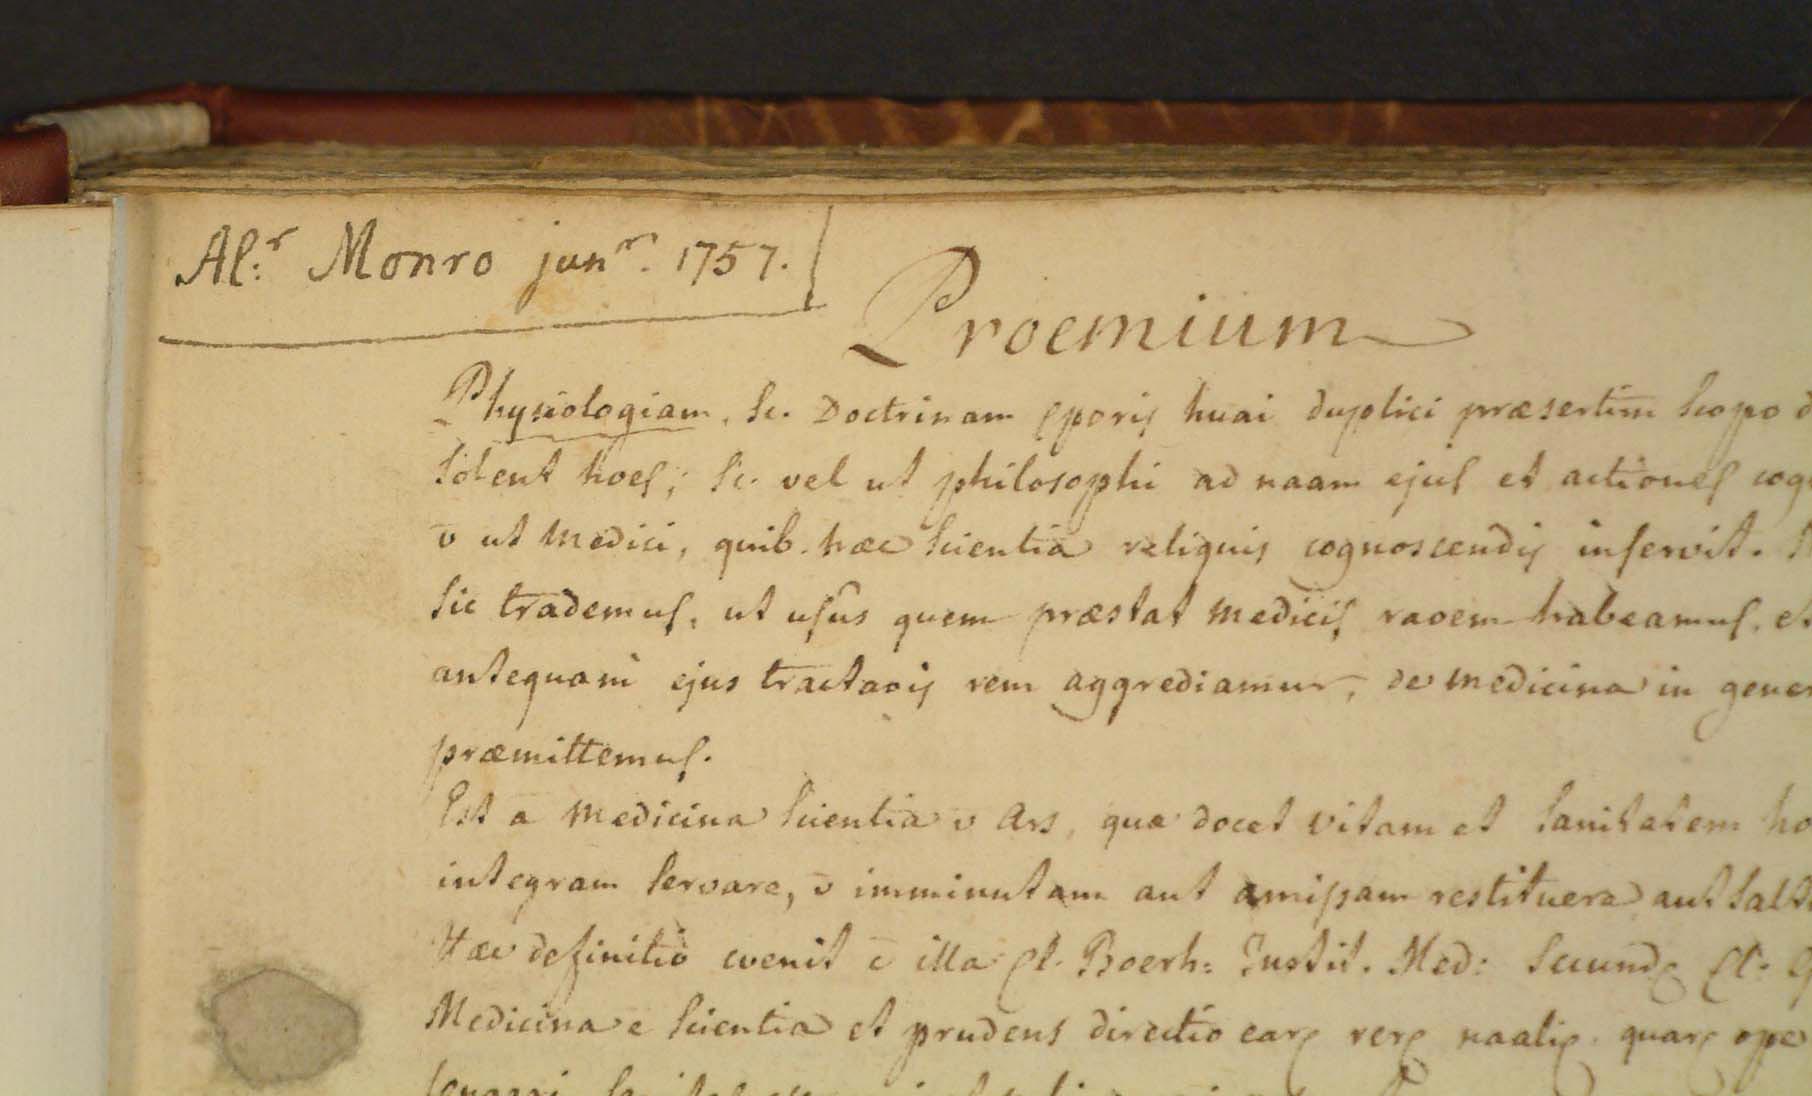 Al:r Monro junr. 1757.
Proemium
Physiologiam, sc. Doctrinam cporis huai duplici præsertim scopo
solent hoes; sc. vel ut philosophi ad naam ejus et actiones
v ut Medici, quib. hæc scientia reliquis cognoscendis inservit.
sic trademus, ut usus quem præstat Medicis raoem habeamus, et
antequam ejus tractaois rem aggrediamur, de Medicina in
præmittemus.
Est a Medicina scientia v Ars, quæ docet vitam et sanitatem
integram servare, v imminutam aut amissam restituere aut
Hæc definitio cvenit c illa Cl. Boerh: Instit. Med:
Medicina e scientia et prudens directio ope